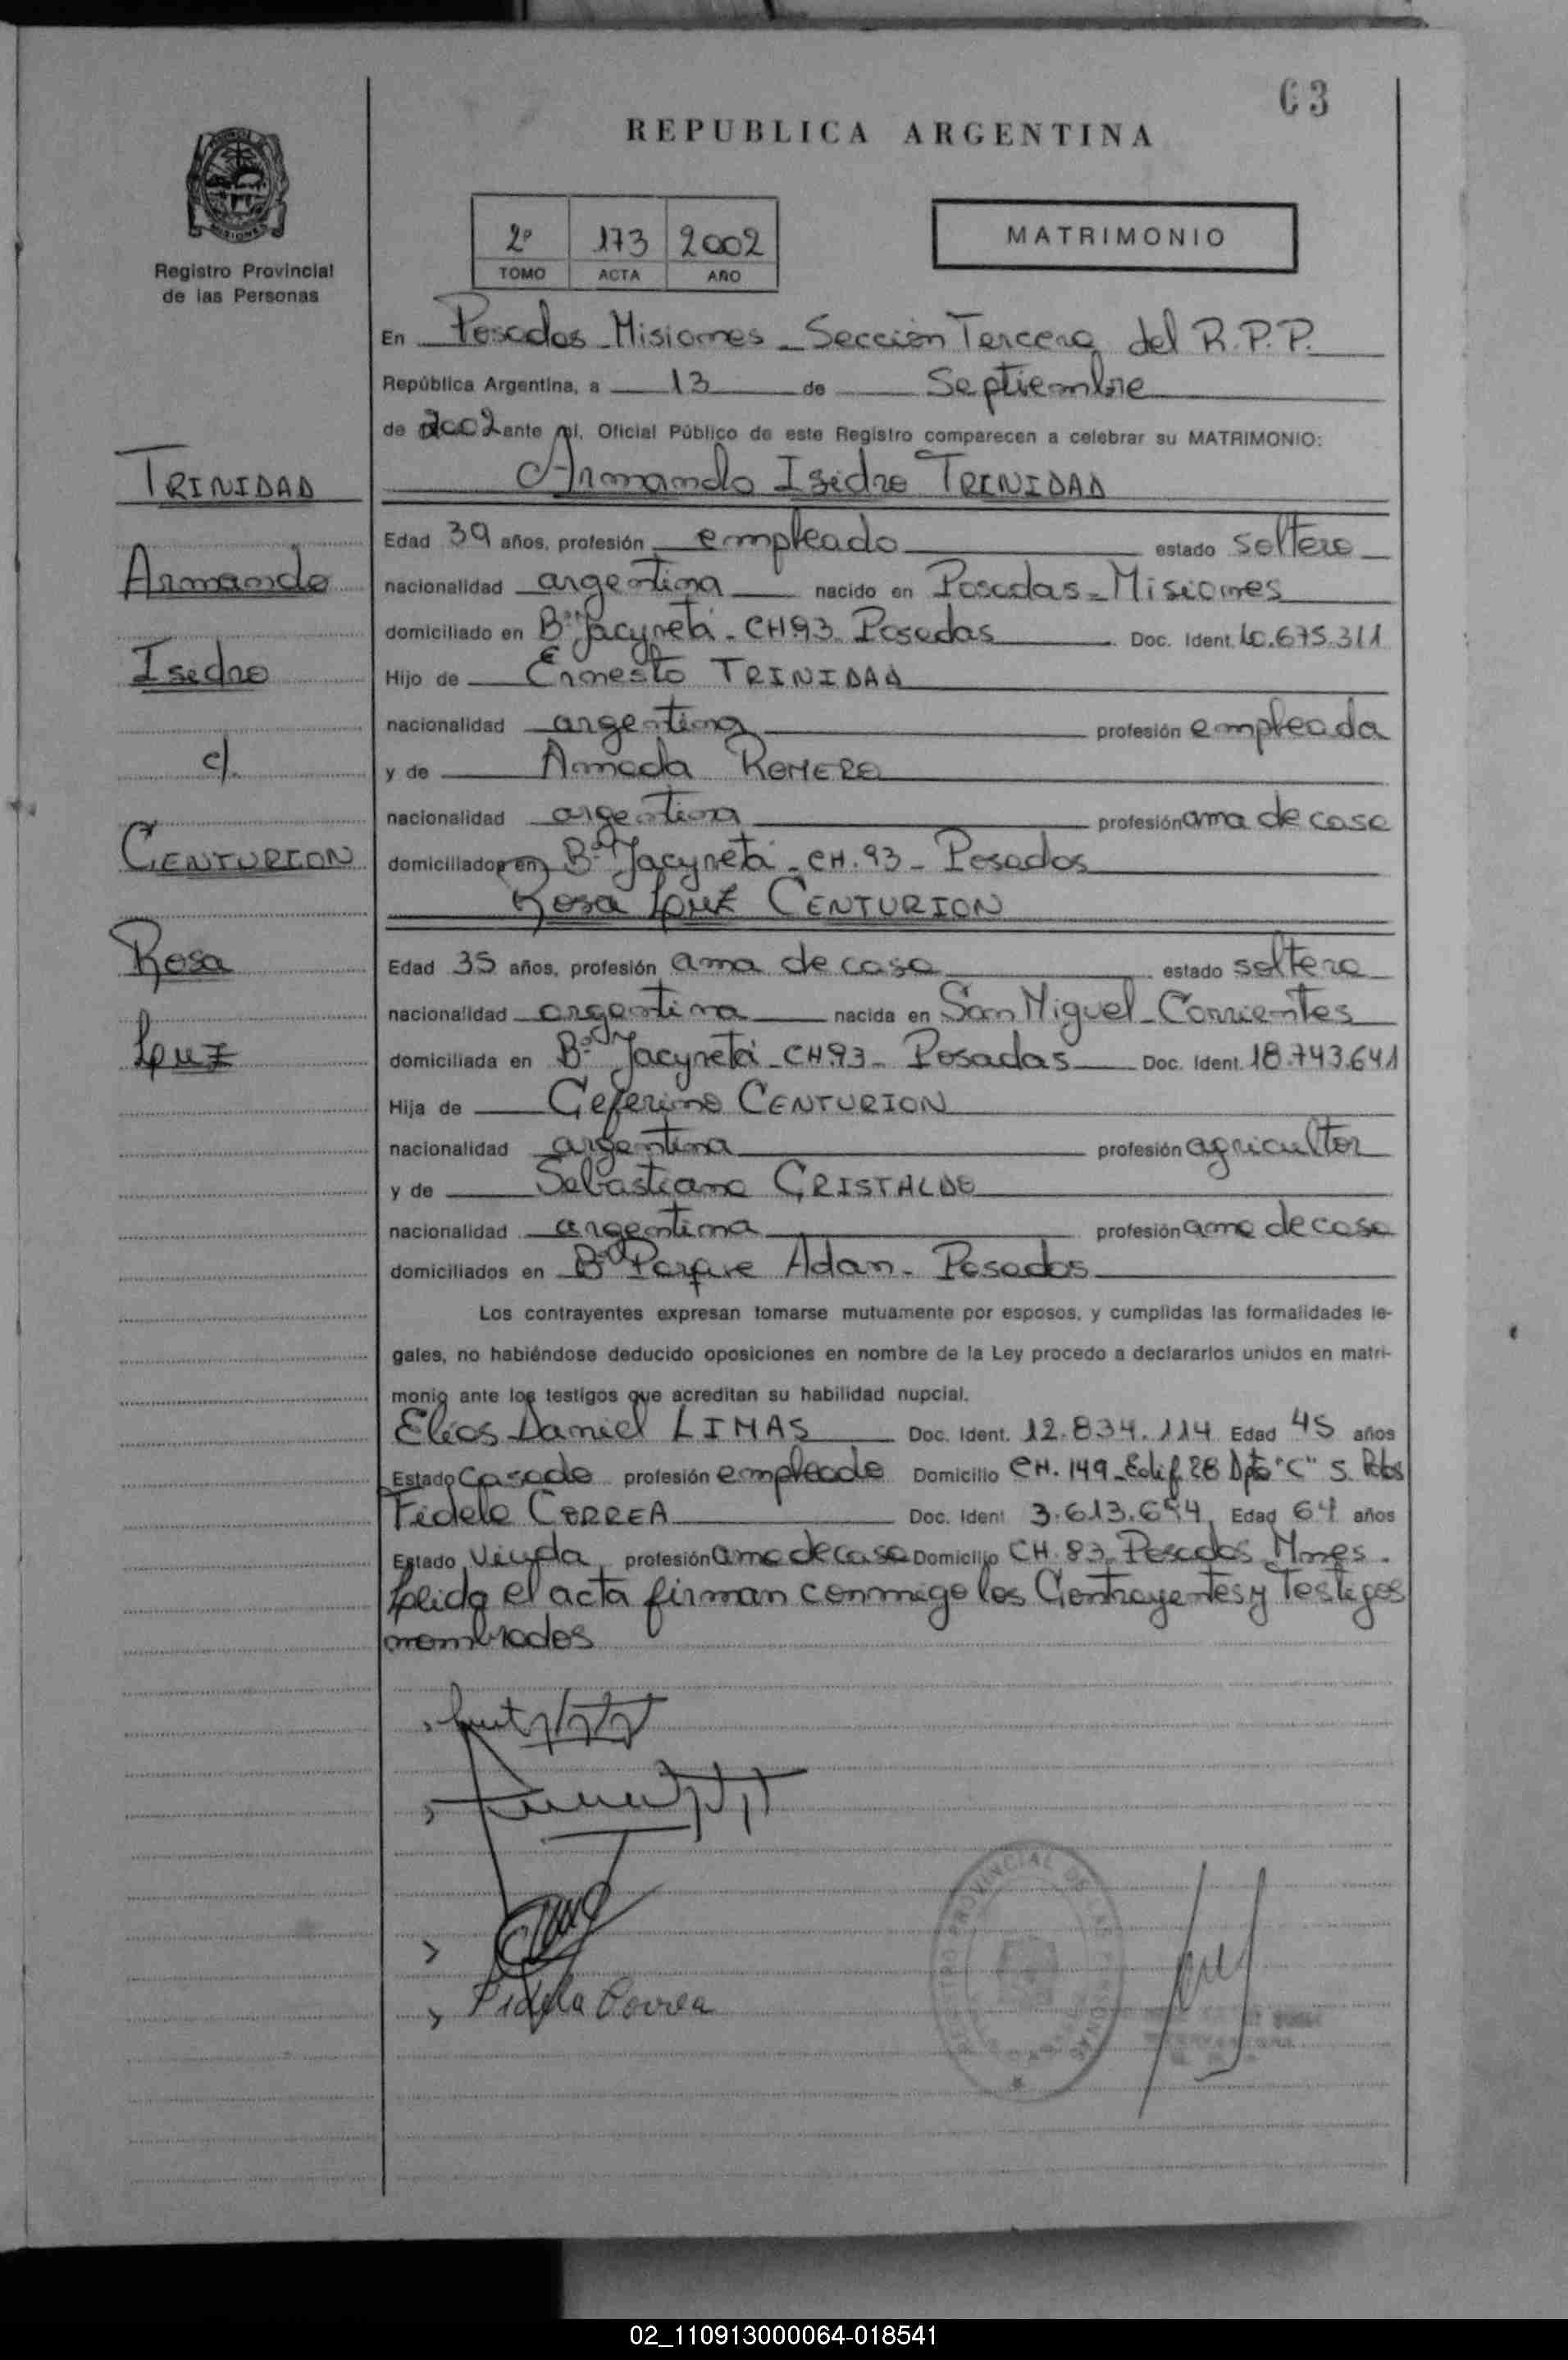 63
REPUBLICA ARGENTINA
2º 173 2002
TOMO ACTA AÑO
MATRIMONIO
MISIONES
Registro Provincial
de las Personas
En Posadas - Misiones - Sección Tercera del R.P.P.
República Argentina, a 13 de Septiembre
de 2002 ante mí, Oficial Público de este Registro comparecen a celebrar su MATRIMONIO:
TRINIDAD
Armando Isidro TRINIDAD
Edad 39 años, profesión empleado estado soltero
Armando
nacionalidad argentina nacido en Posadas - Misiones
domiciliado en Bº Yacyretá - CH 93 Posadas Doc. Ident. .675.311
Isidro
Hijo de Ernesto TRINIDAD
nacionalidad argentina profesión empleada
c/.
y de Armeda ROMERO
nacionalidad argentina profesión ama de casa
CENTURION
domiciliados en Bº Yacyretá - CH. 93 - Posadas
Rosa Luz CENTURION
Rosa
Edad 35 años, profesión ama de casa estado soltera
nacionalidad argentina nacida en San Miguel - Corrientes
Luz
domiciliada en Bº Yacyretá - CH 93 - Posadas Doc. Ident. 18.743.641
Hija de Ceferino CENTURION
nacionalidad argentina profesión agricultor
y de Sebastiana GRISTALDO
nacionalidad argentina profesión ama de casa
domiciliados en Bº Parque Adam - Posadas
Los contrayentes expresan tomarse mutuamente por esposos, y cumplidas las formalidades le-
gales, no habiéndose deducido oposiciones en nombre de la Ley procedo a declararlos unidos en matri-
monio ante los testigos que acreditan su habilidad nupcial.
Elías Daniel LIMAS Doc. Ident. 12.834.114 Edad 45 años
Estado Casado profesión empleado Domicilio CH. 149 - Edif 28 Dpto "C" S. Pdas
Fidela CORREA Doc. Ident 3.613.694 Edad 64 años
Estado Viuda profesión ama de casa Domicilio CH. 93 Posadas Mnes.
Leida el acta firman conmigo los Contrayentes y Testigos
nombrados
Fidela Correa
REGISTRO PROVINCIAL DE LAS PERSONAS
02_110913000064-018541